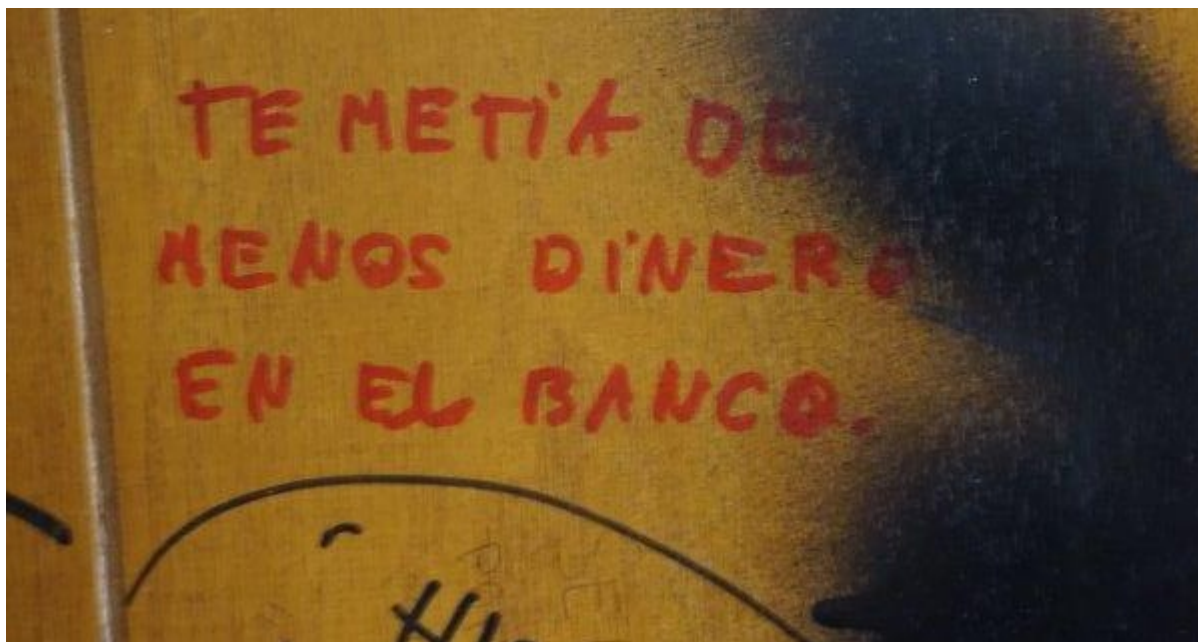 TE METÍA DE
MENOS DINERO
EN EL BANCO.